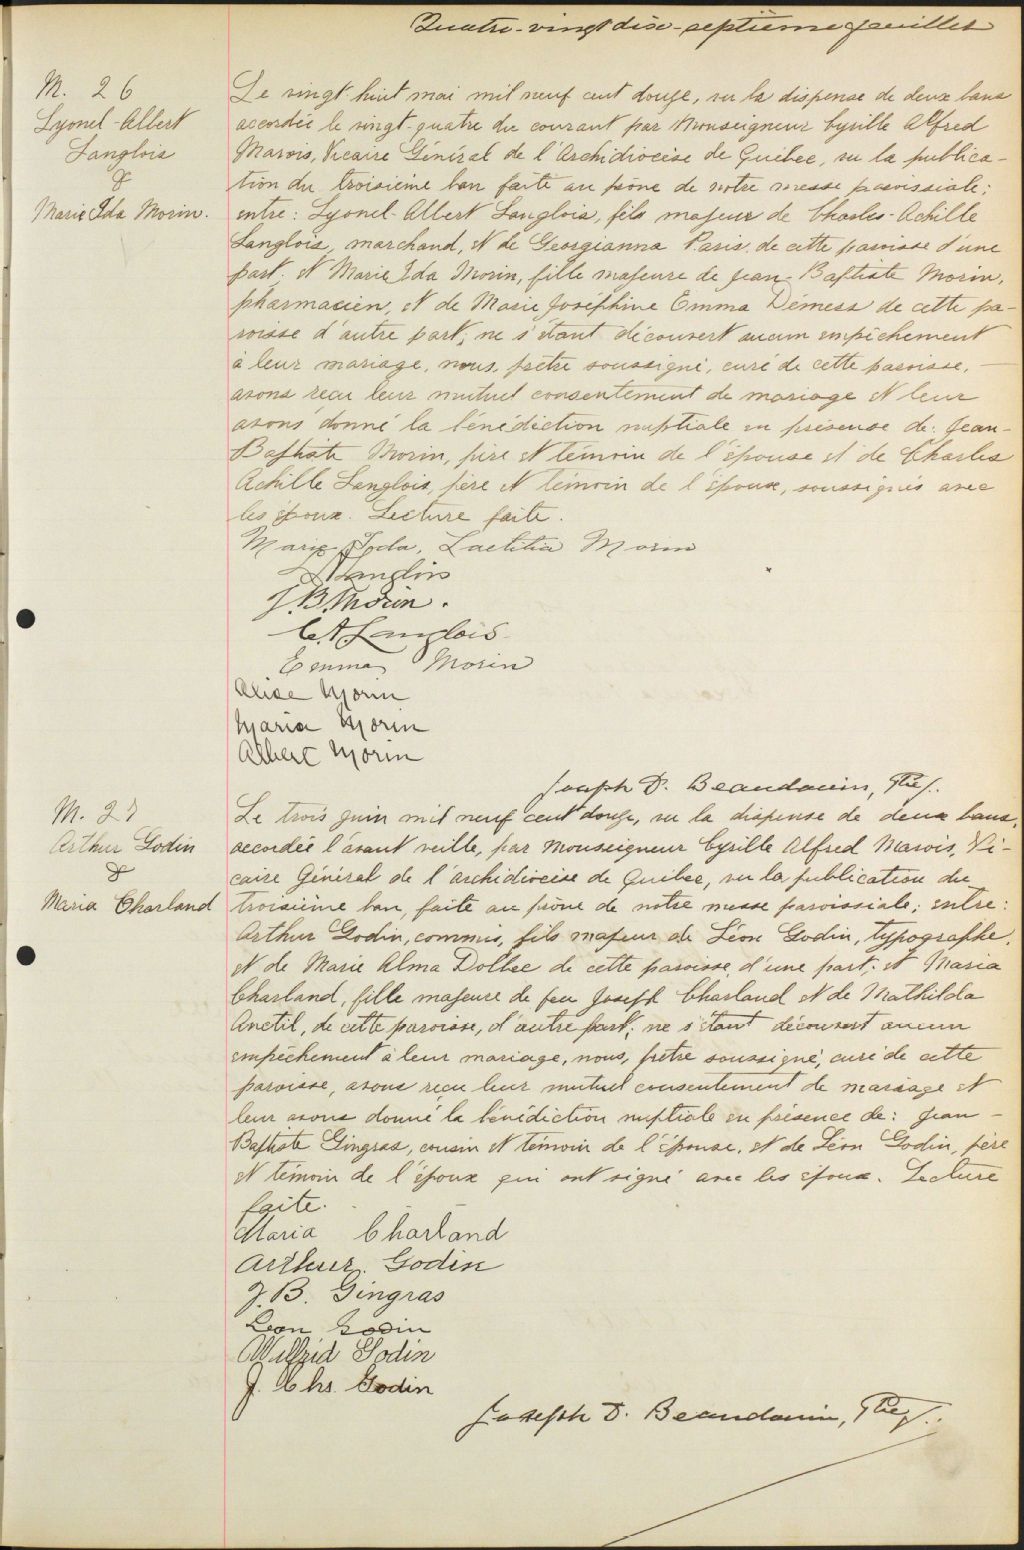 Quatre-vingt dix-septième feuillet
M. 26
Lyonel-Albert
Langlois
&
Marie Ida Morin.
Le vingt-huit mai mil neuf cent douze, vu la dispense de deux bans
accordée le vingt-quatre du courant par Monseigneur Cyrille Alfred
Marois, Vicaire Général de l'Archidiocèse de Québec, vu la publica-
tion du troisième ban faite au prône de notre messe paroissiale;
entre: Lyonel-Albert Langlois, fils majeur de Charles-Achille
Langlois, marchand, et de Georgianna Paris, de cette paroisse d'une
part. et Marie Ida Morin, fille majeure de Jean-Baptiste Morin,
pharmacien, et de Marie Joséphine Emma Démess de cette pa-
roisse d'autre part; ne s'étant découvert aucun empêchement
à leur mariage, nous, prêtre soussigné, curé de cette paroisse,
avons reçu leur mutuel consentement de mariage et leur
avons donné la bénédiction nuptiale en présense de: Jean-
Baptiste Morin, père et témoin de l'épouse et de Charles
Achille Langlois, père et témoin de l'époux, soussignés avec
les époux. Lecture faite.
Marie Ida, Laetitia Morin
L A Langlois
J. B. Morin.
C. A. Langlois
Emma Morin
Alice Morin
Maria Morin
Albert Morin
Joseph D. Beaudouin, Ptre.
M. 27
Arthur Godin
&
Maria Charland
Le trois juin mil neuf cent douze, vu la dispense de deux bans,
accordée l'avant veille, par Monseigneur Cyrille Alfred Marois, Vi-
caire Général de l'archidiocèse de Québec, vu la publication du
troisième ban, faite au prône de notre messe paroissiale; entre:
Arthur Godin, commis, fils majeur de Léon Godin, typographe,
et de Marie Alma Dolbec de cette paroisse, d'une part; et Maria
Charland, fille majeure de feu Joseph Charland et de Mathilda
Anctil, de cette paroisse, d'autre part; ne s'étant découvert aucun
empêchement à leur mariage, nous, prêtre soussigné, curé de cette
paroisse, avons reçu leur mutuel consentement de mariage et
leur avons donné la bénédiction nuptiale en présence de: Jean-
Baptiste Gingras, cousin et témoin de l'épouse, et de Léon Godin, père
et témoin de l'époux qui ont signé avec les époux. Lecture
faite.
Maria Charland
Arthur Godin
J. B. Gingras
Leon Godin
Wilfrid Godin
J. Chs. Godin
Joseph D. Beaudouin, Ptre.